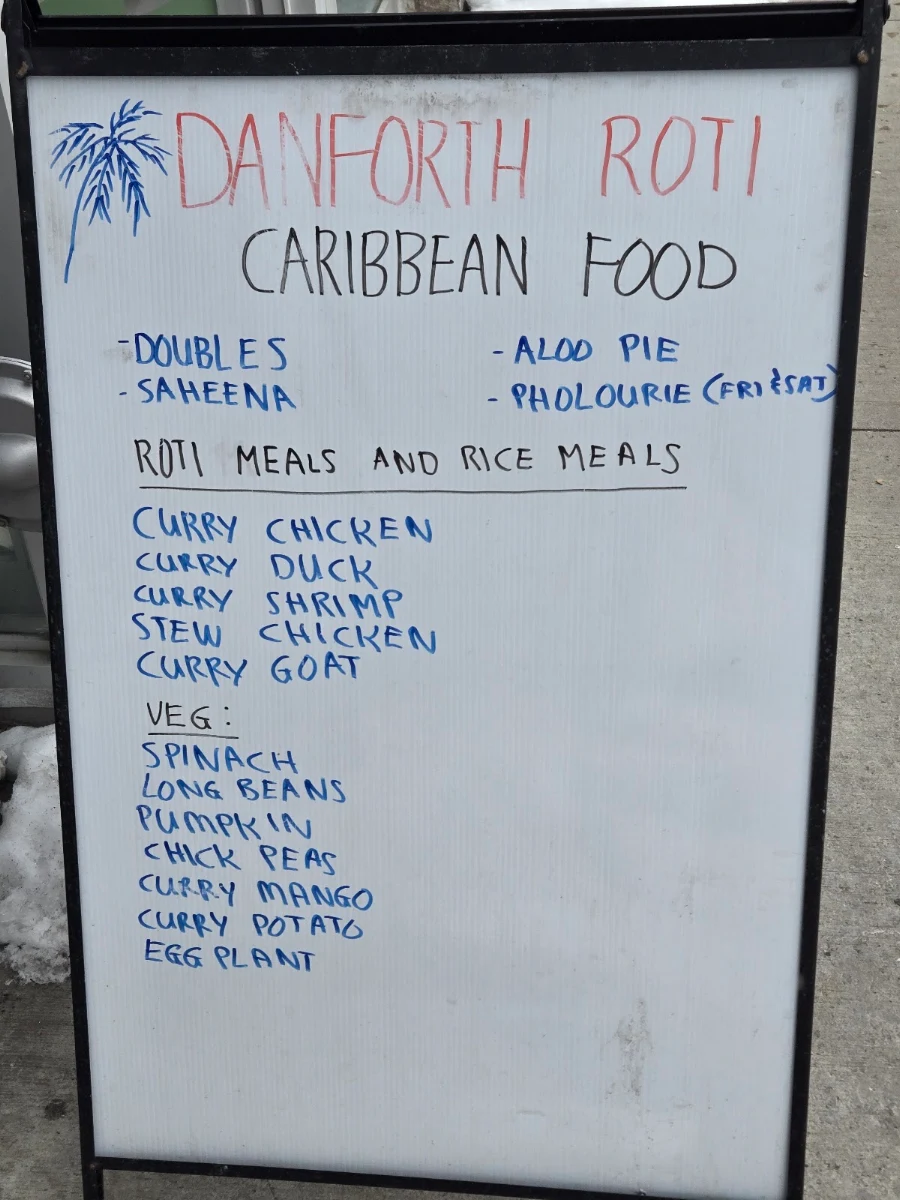 DANFORTH ROTI
CARIBBEAN FOOD
- DOUBLES
- ALOO PIE
- SAHEENA
- PHOLOURIE (FRI & SAT)
ROTI MEALS AND RICE MEALS
CURRY CHICKEN
CURRY DUCK
CURRY SHRIMP
STEW CHICKEN
CURRY GOAT
VEG:
SPINACH
LONG BEANS
PUMPKIN
CHICK PEAS
CURRY MANGO
CURRY POTATO
EGG PLANT